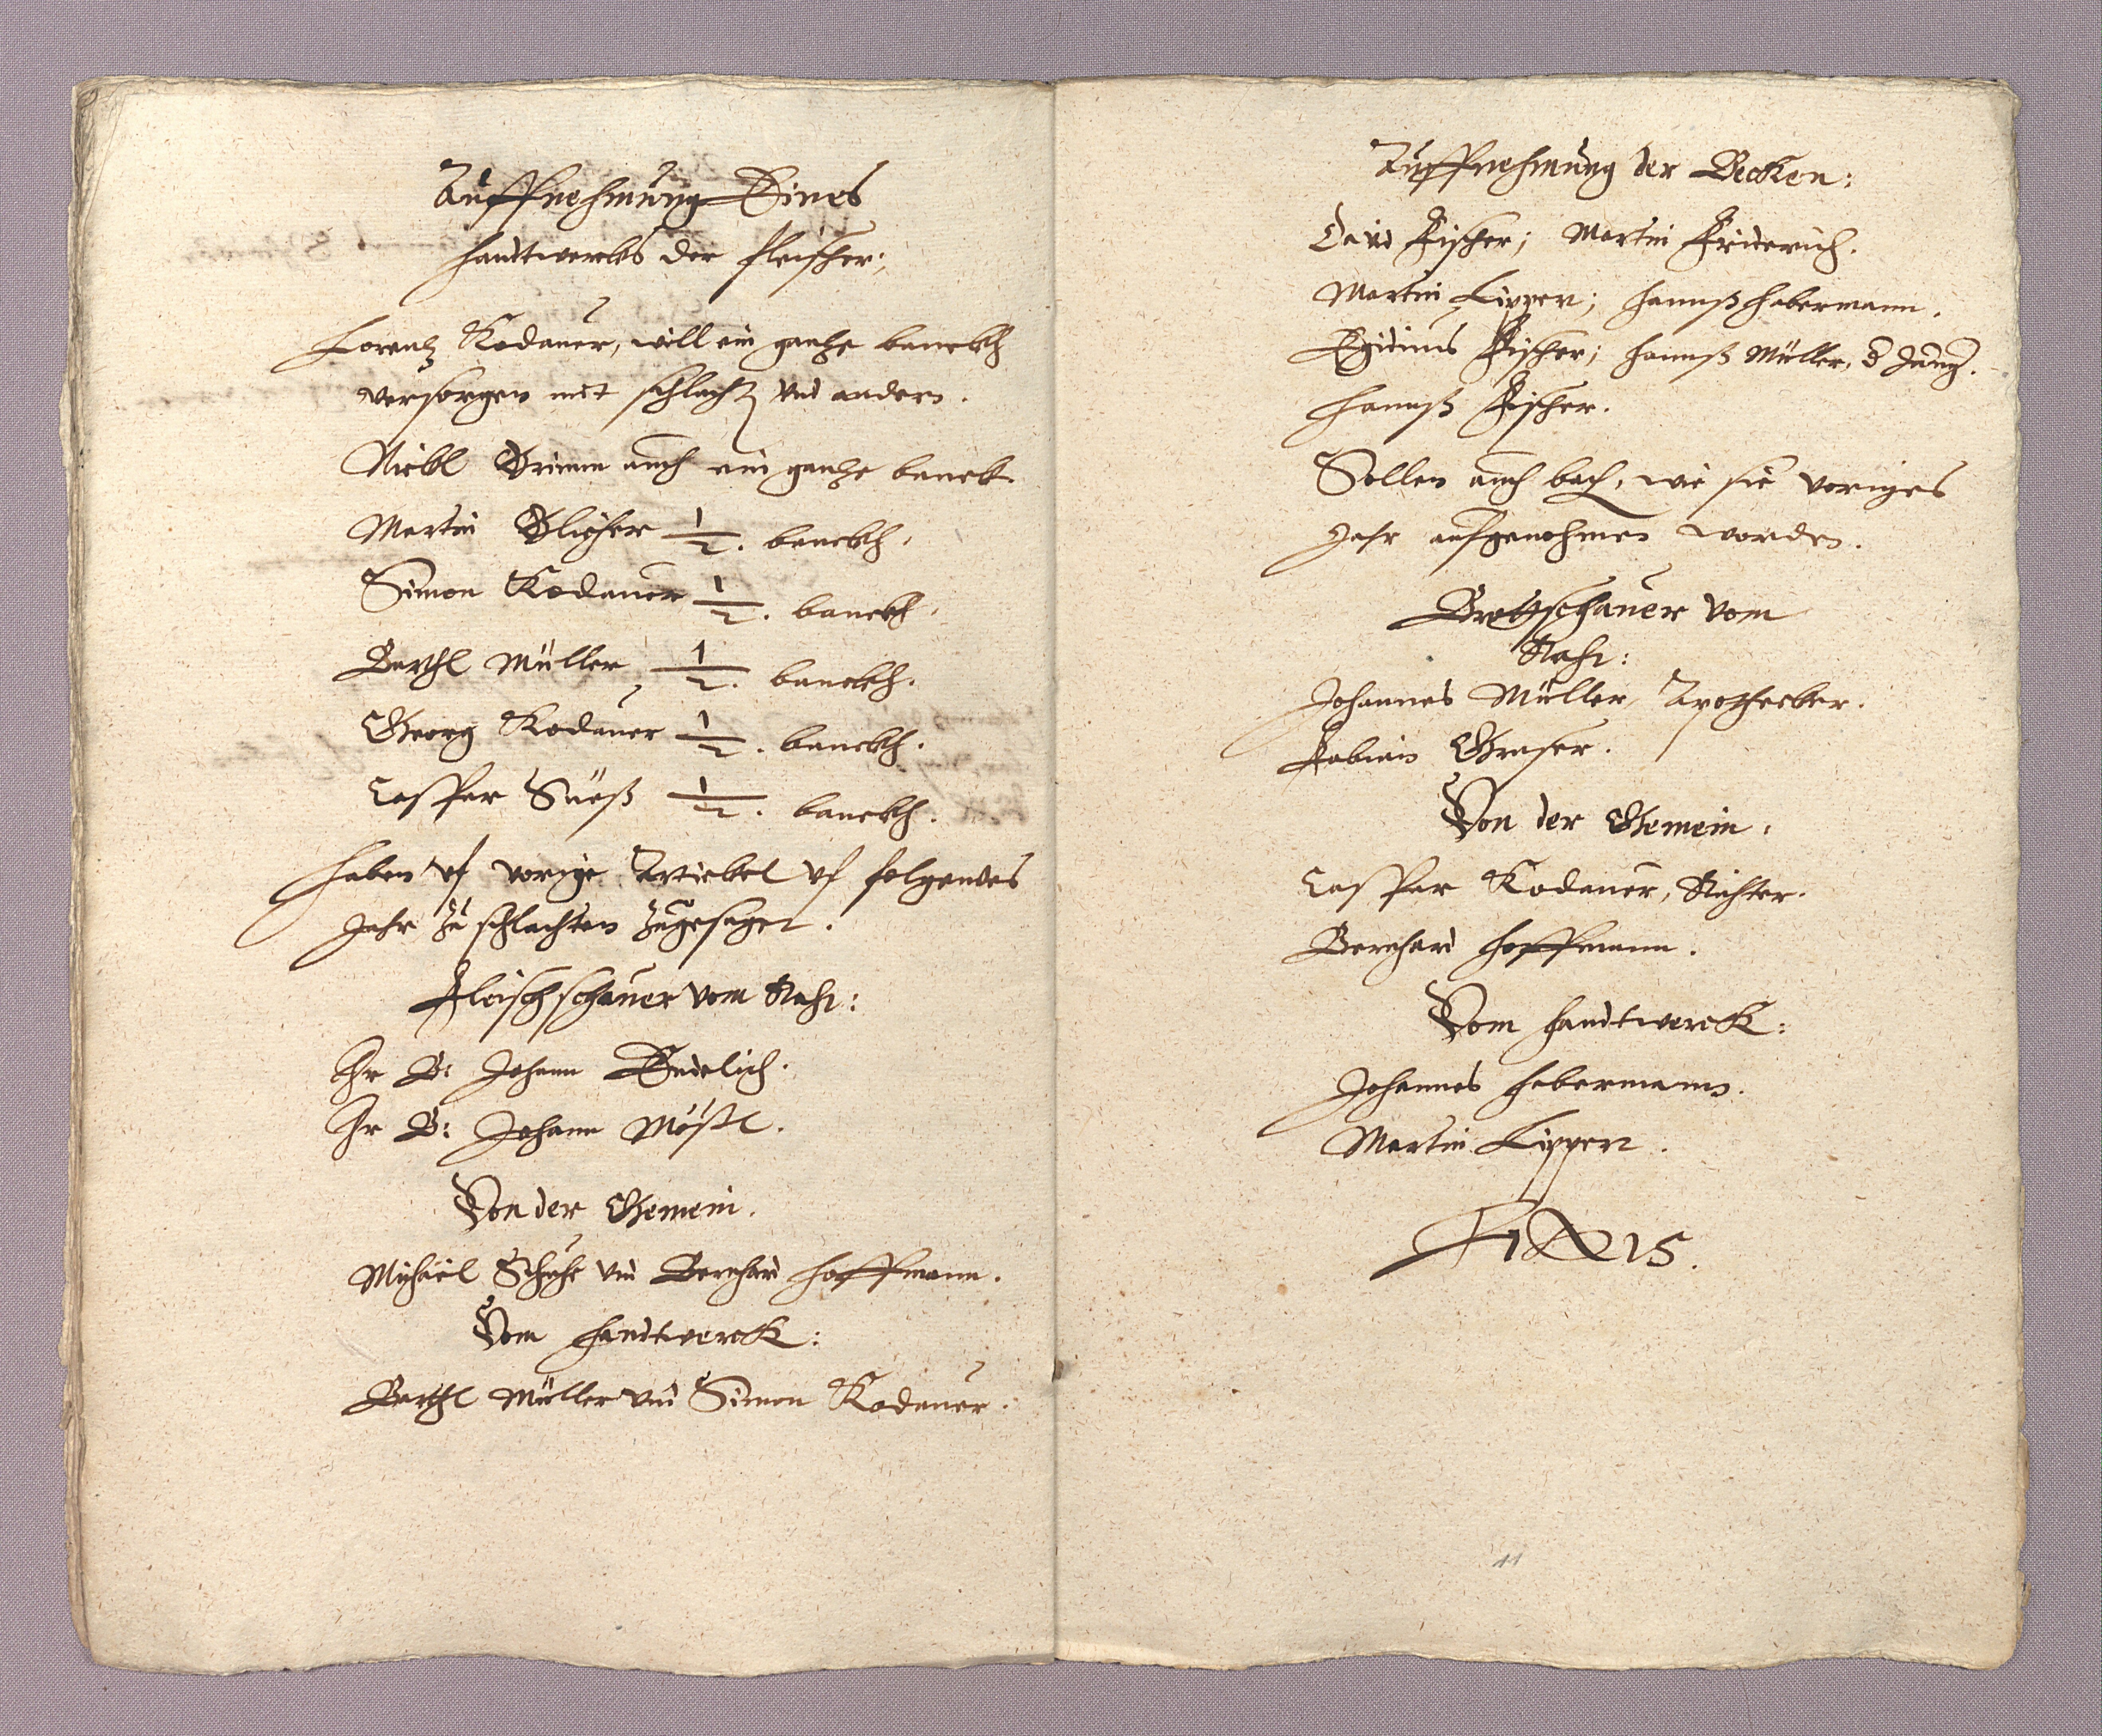 Auffnehmung Eines
handtwercks der fleischer;
Lorentz Kodauer, will ein gantze banckh
versorgen mit schlacht vnd andern.
Nickl Grimm auch ein gantze banck
Martin 1/2. banckh.
Simon Kodauer 1/2. banckh.
Barthl Müller 1/2. banckh.
Georg Kodauer 1/2. banckh.
Casspar Süeß 1/2. banckh.
haben vf vorige Artickel vf folgendes
Jahr zu schlachten zugesaget.
Fleischschauer vom Raht:
Hr B: Johann Endelich.
Hr B: Johann Mößl.
Von der Gemein.
Michäel vnd Bernhard Hoffmann.
Vom handtwerck:
Barthl Müller vnd Simon Kodauer.
Auffnehmung der Becken:
David Fischer; Martin Friderich.
Martin Lippert; hannß habermann.
Egidius Fischer; hannß Müller, d Jung.
hannß Fischer.
Sollen auch bach, wie sie voriges
Jahr aufgenohmen worden.
Brottschauer vom
Raht:
Johannes Müller, Apothecker.
Fabian Graser.
Von der Gemein.
Casspar Kodauer, Richter.
Bernhard hoffmann.
Vom handtwerck:
Johannes habermann.
Martin Lippert.
FINIS.
11